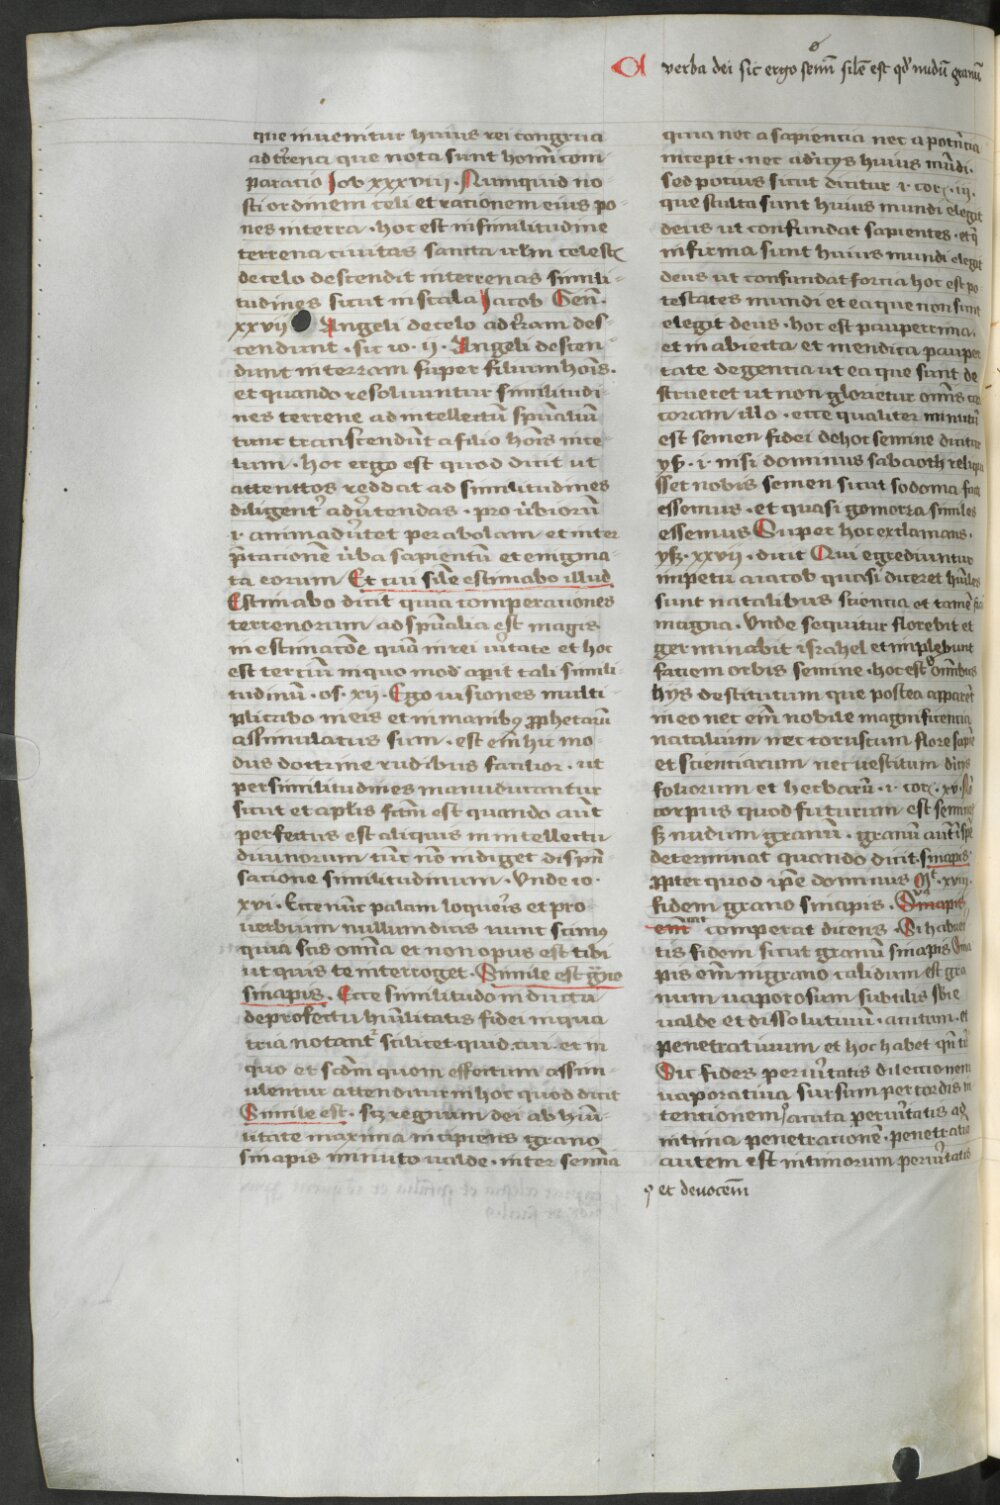 verba dei sic ergo semī sile est qđ nudū granū
que inuenitur huius rei congrua
ad t̄rena que nota sunt homī com
paratio Job xxxviii · Numquid no
sti ordinem celi et rationem eius po
nes in terra · hoc est in similitudine
terrena ciuitas sancta irlm celest
de celo descendit in terrenas simili
tudines sicut in scala Jacob Gen̄ ·
xxvii Angeli de celo ad t̄ram des
cendunt · sic io · ii · Angeli descen
dunt in terram super filium hoīs ·
et quando resoluuntur similitudi
nes terrene ad intellectū sp̄ualiū
tunc transcendūt a filio hoīs in ce
lum · hoc ergo est quod dicit ut
attentos reddat ad similitudines
diligent̄ adūtendas · prouerbiorū
i · animaduertet parabolam et inter
p̄tationē ūba sapientū et enigma
ta eorum Et cui sile estimabo illud
Estimabo dicit quia comperationes
terrenorum ad sp̄ualia est magis
in estimatōe quā in rei ūitate et hoc
est terciū in quo mod capit tali simili
tudinū · os · xii · Ego uisiones multi
plicabo in eis et in manibꝫ ꝓphetarū
assimulatus sum · est em̄ hic mo
dus doctrine rudibus facilior · ut
per similitudines manuducantur
sicut et aplis factm est quando aut
perfectus est aliquis in intellectu
diuinorum tūc nō indiget dispen
satione similitudinum · Unde io ·
xvi · Ecce nūc palam loqueris et pro
uerbium nullum dicis nunc scimꝰ
quia scis omīa et non opus est tibi
ut quis te interroget · Simile est ḡno
sinapis · Ecce similitudo inducta
de profectu hūilitatis fidei in qua
tria notant᷑ scilicet quid cui et in
quo et scdm quem effectum assim
ulentur attenditur in hoc quod dicit
Simile est · sꝫ regnum dei ab hūi
litate maxima incipiens grano
sinapis minuto ualde · inter semīa
quia nec a sapiencia nec a potn̄cia
incepit · nec adicijs huius mūdi ·
sed pocius sicut dicitur i · cor · iij ·
que stulta sunt huius mundi elegit
deus ut confundat sapientes · et q̄
infirma sunt huius mundi elegit
deus ut confundat forcia hoc est po
testates mundi et ea que non sunt
elegit deus · hoc est paupertima ·
et in abiecta et mendica pauper
tate degencia ut ea que sunt de
strueret ut non glorietur om̄is ca
ro coram illo · ecce qualiter minutū
est semen fidei de hoc semine dicitur
ysa · i · nisi dominus sabaoth reliqui
sset nobis semen sicut sodoma fac
essemus · et quasi gomorra similes
essemus Super hoc exclamans ·
ysa · xxvii · dicit Qui egrediuntur
impetu a iacob quasi diceret hūiles
sunt natalibus sciencia et tamē
magna · Unde sequitur florebit et
germinabit israhel et implebunt
faciem orbis semine · hoc est omībus
hys destitutum que postea apparēt
in eo nec em̄ nobile magnificencia
natalium nec coruscum flore sapie
et scientiarum nec uestitum diuis
foliorum et herbarū · i · cor · xv · Nō
corpus quod futurum est seminas
sꝫ nudum granū · granū aut̄ spe
determinat quando dicit sinapis
ꝓpter quod ipe dominus Mt̄ · xviii ·
fidem grano sinapis · Sinapis
em̄ comperat dicens · Si habuer
tis fidem sicut granū sinapis Sina
pis em̄ in grano calidum est gra
num uaporosum subtilis sbe
ualde et dissolutiuū · acutum · et
penetratiuum et hoc habet
Sic fides periūitatis dilectionem
uaporatiua sursum per cordis in
tentionem acuta periūitatis ad
intima penetrationē · penetratio
autem est intimorum periūitatis
et deuocem̄